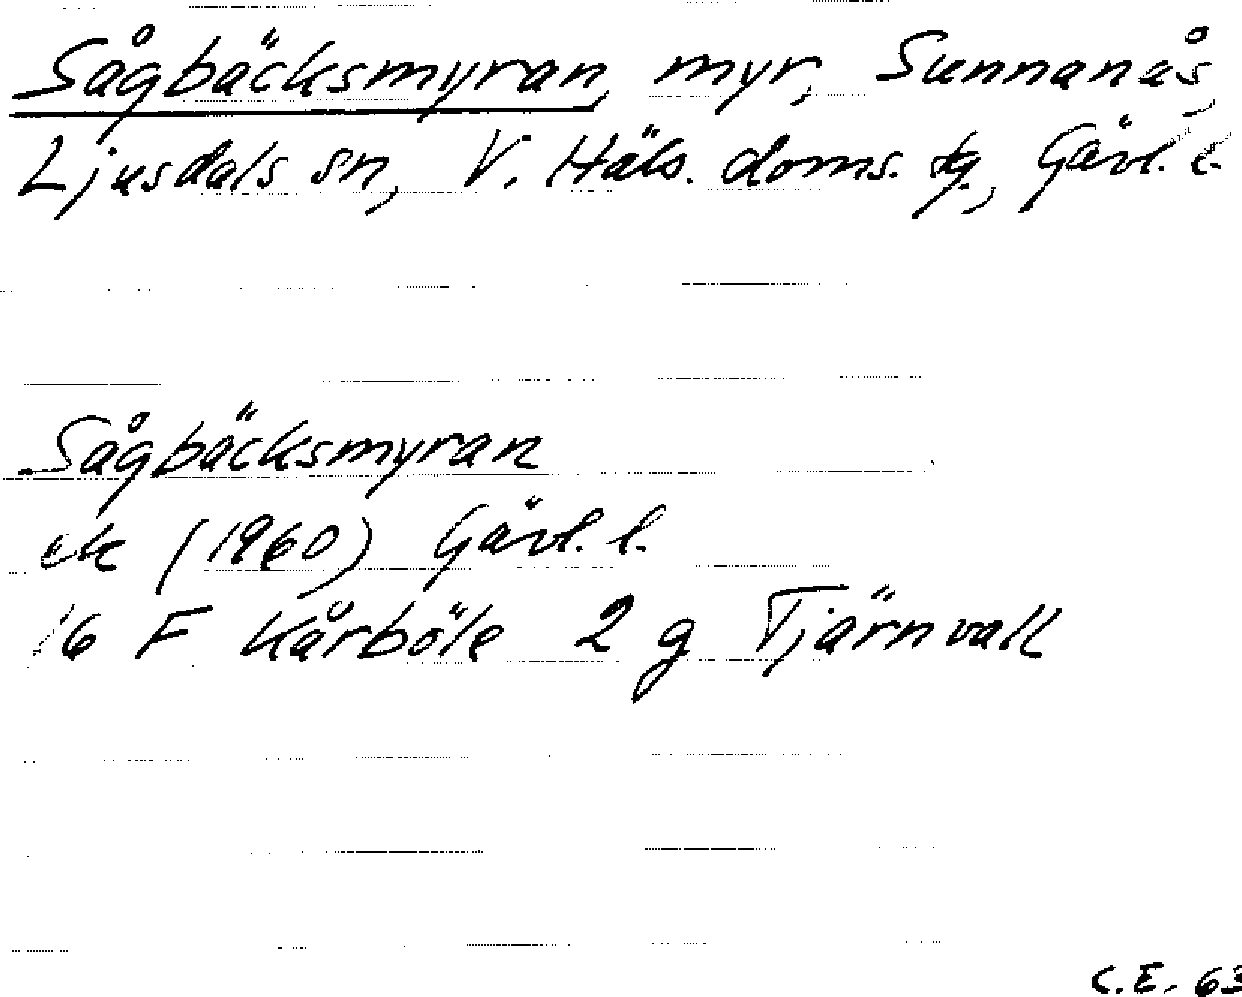 Sågbäcksmyran, myr, Sunnanås,
Ljusdals sn, V. Häls. doms. tg., Gävl. l.
Sågbäcksmyran
ek (1960) Gävl. l.
16 F Kårböle 2 g Tjärnvall
C.E. 63